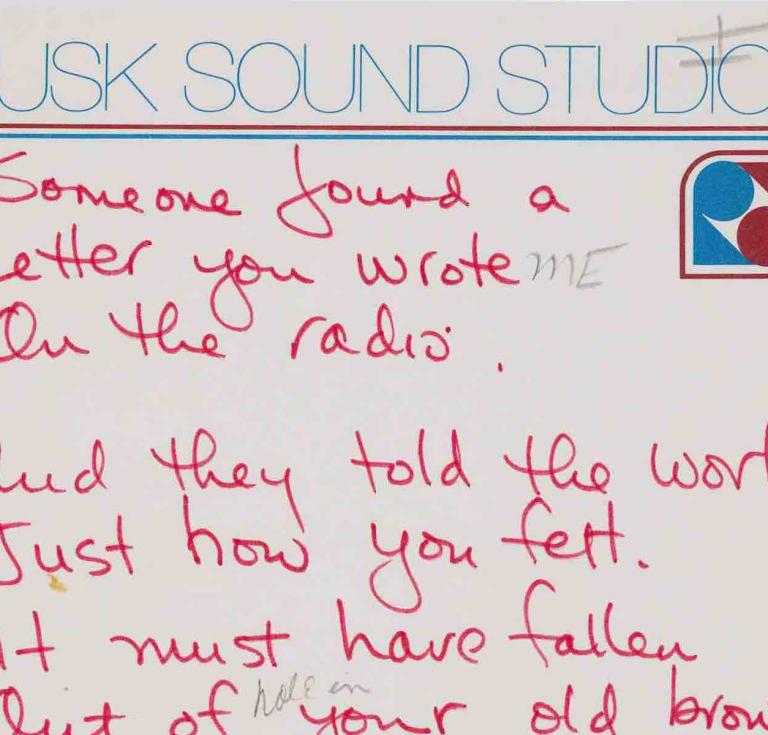 USK SOUND STUDIO
Someone found a
etter you wrote ME
On the radio.
And they told the worl
Just how you felt.
It must have fallen
hole in
Out of your old brow